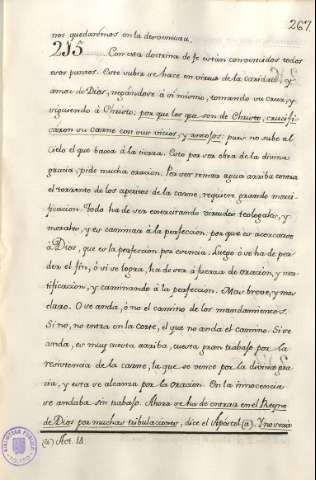 267.
nos quedarémos en la desventura.
215 Con esta doctrina de fe están convencidos todos
esos puntos. Esta subra se hace en virtud de la caridad, y
amor de Dios, negándose á sí mismo, tomando su cruz, y
siguiendo á Christo; porque los que son de Christo, crucifi-
caron su carne con sus vicios, y antojos; pues no sube al
Cielo el que baxa á la tierra. Esto por ser obra de la divina
gracia, pide mucha oracion. Por ser remar agua arriba contra
el torrente de los apetitos de la carne, requiere grande morti-
ficacion. Toda ha de ser exercitando virtudes teologales, y
morales, y es caminar á la perfeccion, porque es acercarse
á Dios, que es la perfeccion por esencia. Luego ó se ha de per-
der el fin, ó si se logra, ha de ser á fuerza de oracion, y mor-
tificacion, y caminando á la perfeccion. Mas breve, y mas
claro. O se anda, ó no el camino de los mandamientos.
Si no, no entra en la corte, el que no anda el camino. Si se
anda, es muy cuesta arriba, cuesta gran trabajo por la
resistencia de la carne, la que se vence por la divina gra-
cia, y esta se alcanza por la oracion. En la inocencia
se andaba sin trabajo. Ahora se ha de entrar en el Reyno
de Dios por muchas tribulaciones, dice el Apóstol (a). Y no veis
(a) Act. 14.
BIBLIOTECA PUBLICA